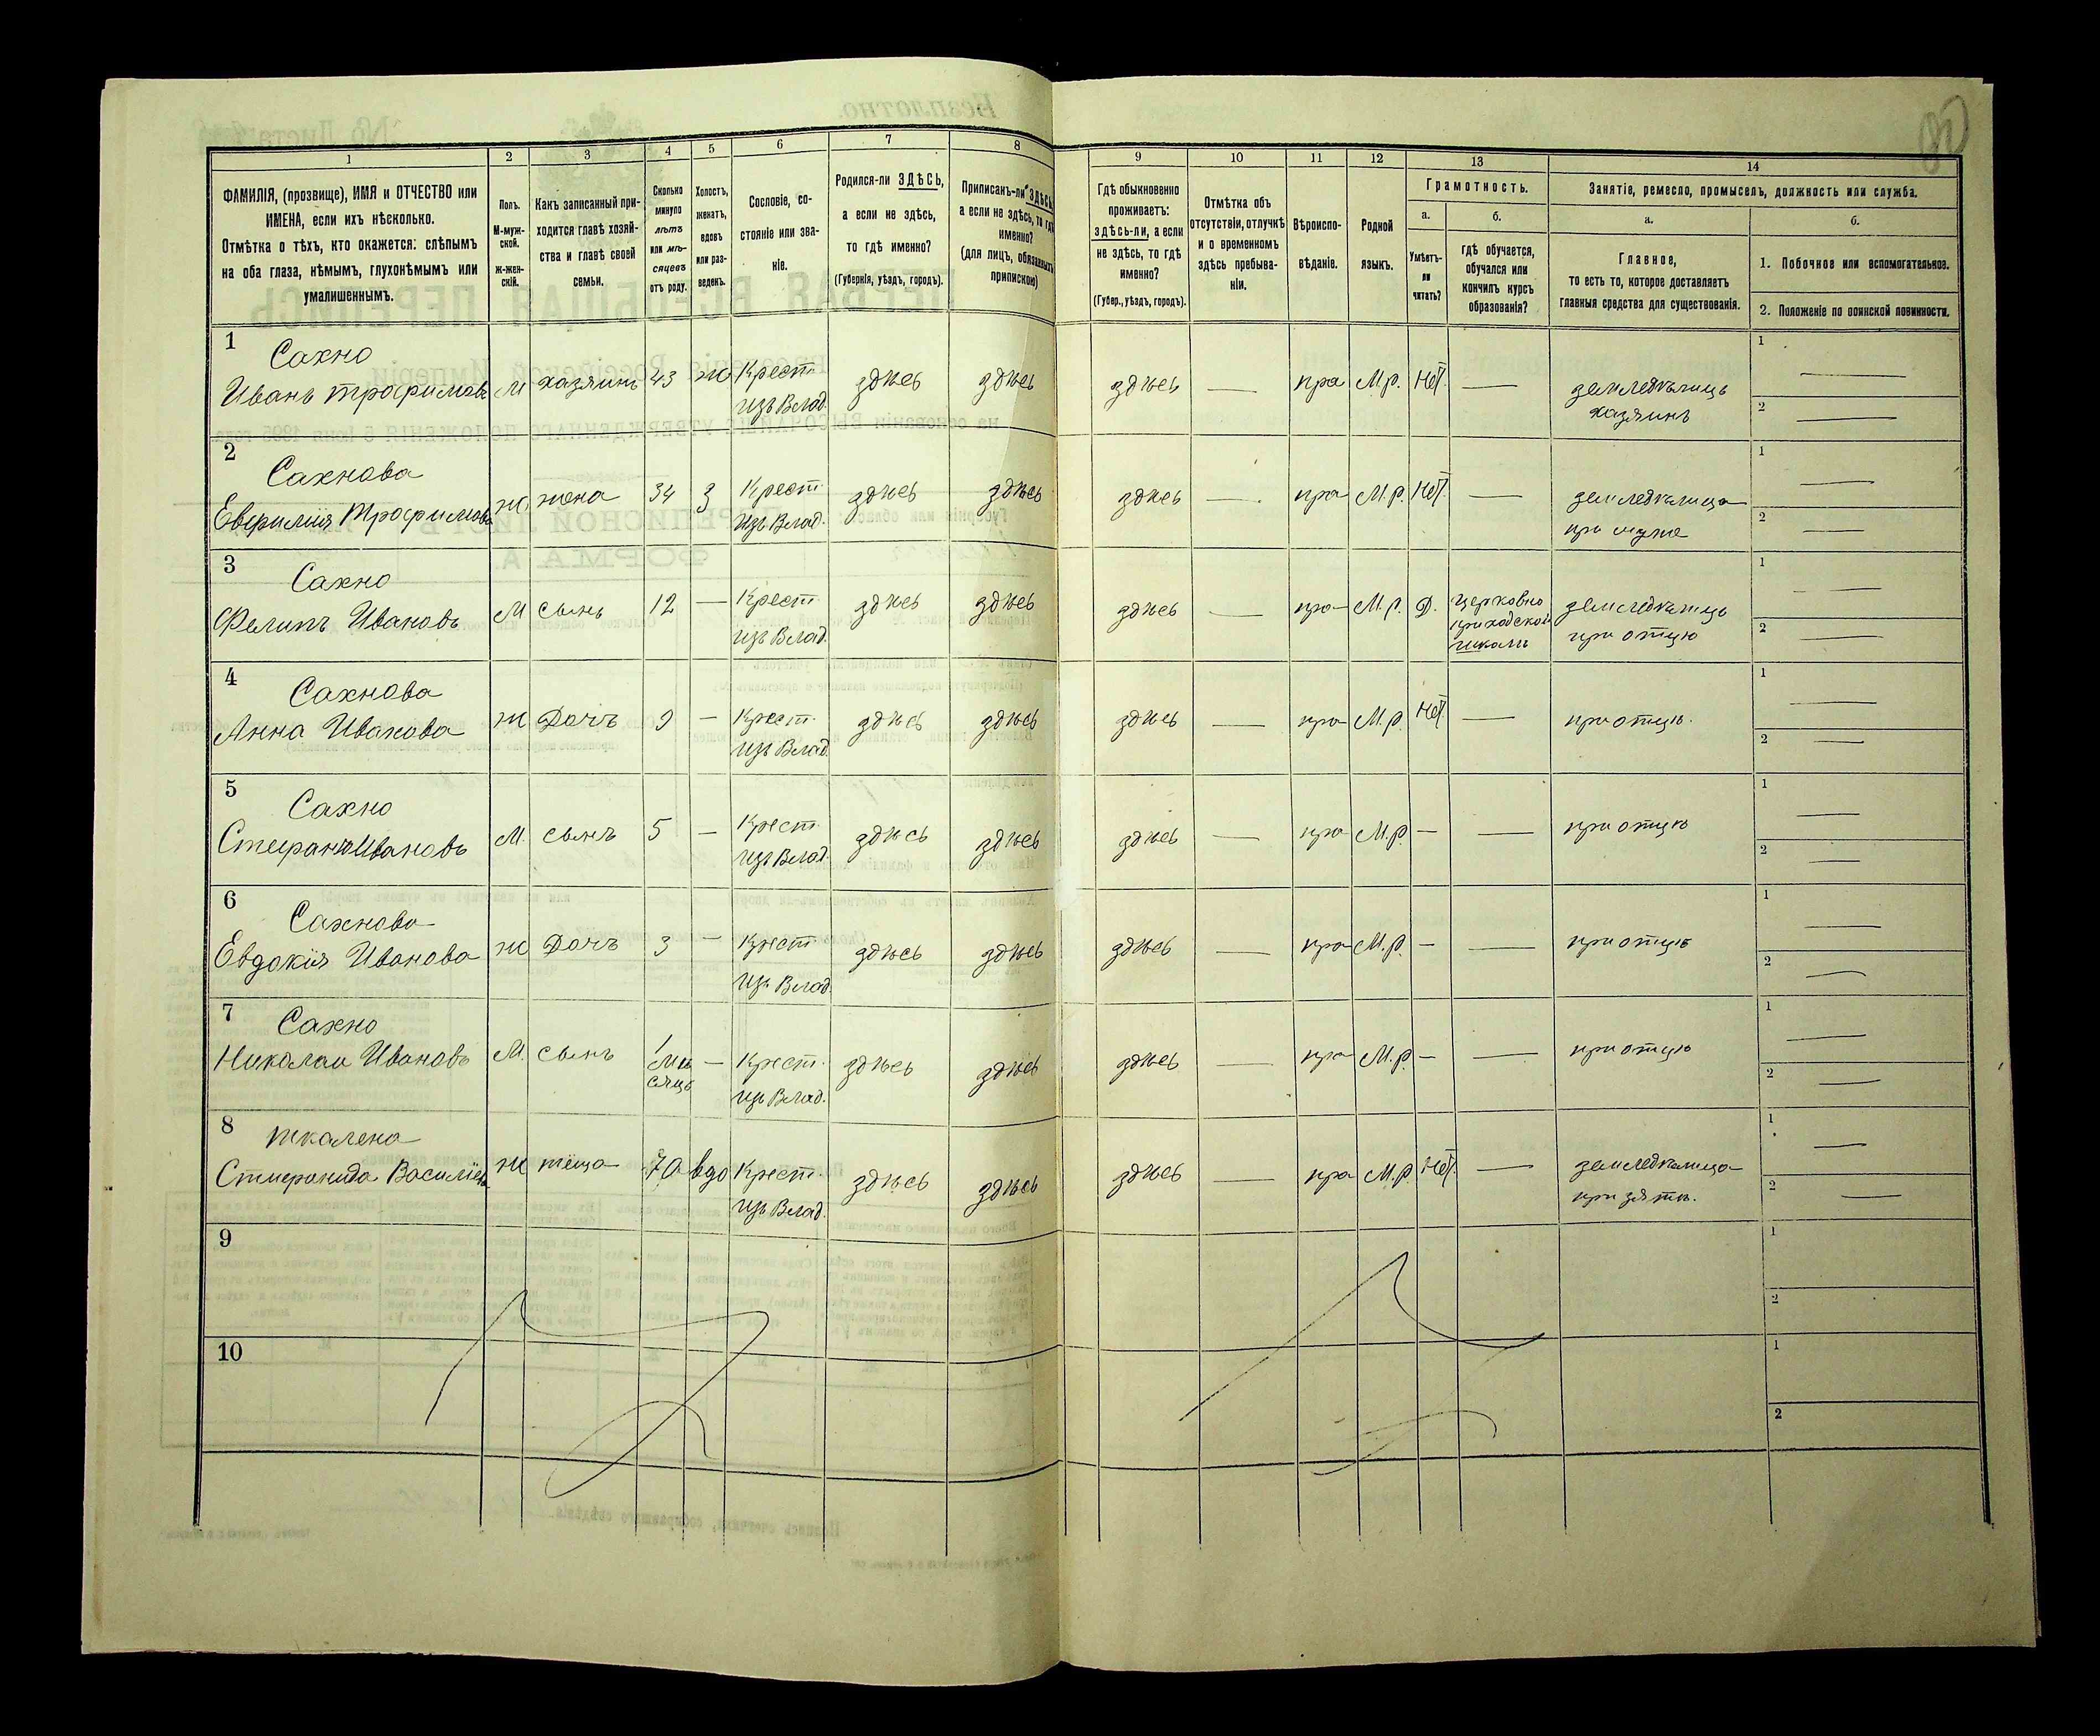 1 2 3 4 5 6 7 8 9 10 11 12 13 14
ФАМИЛІЯ, (прозвище), ИМЯ и ОТЧЕСТВО или ИМЕНА, если ихъ нѣсколько.
Отмѣтка о тѣхъ, кто окажется: слѣпымъ на оба глаза, нѣмымъ, глухонѣмымъ или умалишеннымъ.
Полъ. М-муж-ской. Ж-жен-скій.
Какъ записанный при-ходится главѣ хозяй-ства и главѣ своей семьи.
Сколько минуло лѣтъ или мѣ-сяцевъ отъ роду.
Холостъ, женатъ, вдовъ или раз-веденъ.
Сословіе, со-стояніе или зва-ніе.
Родился-ли ЗДѢСЬ, а если не здѣсь, то гдѣ именно?
(Губернія, уѣздъ, городъ).
Приписанъ-ли ЗДѢСЬ, а если не здѣсь, то гдѣ именно?
(для лицъ, обязанныхъ припискою)
Гдѣ обыкновенно проживаетъ: здѣсь-ли, а если не здѣсь, то гдѣ именно?
(Губер., уѣздъ, городъ).
Отмѣтка объ отсутствіи, отлучкѣ и о временномъ здѣсь пребыва-ніи.
Вѣроиспо-вѣданіе.
Родной языкъ.
Грамотность.
а. Умѣетъ-ли читать?
б. гдѣ обучается, обучался или кончилъ курсъ образованія?
Занятіе, ремесло, промыселъ, должность или служба.
а. Главное, то есть то, которое доставляетъ главныя средства для существованія.
б.
1. Побочное или вспомогательное.
2. Положеніе по воинской повинности.
1 Сахно
Иванъ Трофимовъ М хазяинъ 43 ж Крест. изъ Влад. здѣсь здѣсь здѣсь — пра М.р. Нет. — земледѣлицъ хазяинъ 1 — 2 —
2 Сахнова
Евфимія Трофимова ж. жена 34 з Крест. изъ Влад. здѣсь здѣсь здѣсь — пра М.р. Нет. — земледѣлица при муже 1 — 2 —
3 Сахно
Филипъ Ивановъ М сынъ 12 — Крест. изъ Влад. здѣсь здѣсь здѣсь — пра М.р. Д. церковно приходской школѣ земледѣлицъ при отцѣ 1 — 2 —
4 Сахнова
Анна Иванова ж Дочъ 9 — Крест. изъ Влад. здѣсь здѣсь здѣсь — пра М.р. Нет. — при отцѣ. 1 — 2 —
5 Сахно
Ивановъ М. сынъ 5 — Крест. изъ Влад. здѣсь здѣсь здѣсь — пра М.р. — — при отцѣ 1 — 2 —
6 Сахнова
Евдокія Иванова ж Дочъ 3 — Крест. изъ Влад. здѣсь здѣсь здѣсь — пра М.р. — — при отцѣ 1 — 2 —
7 Сахно
Николаи Ивановъ М. сынъ 1 мѣсяцъ — Крест. изъ Влад. здѣсь здѣсь здѣсь — пра М.р. — — при отцѣ 1 — 2 —
8
Василіева ж тёща 70 вдо Крест. изъ Влад. здѣсь здѣсь здѣсь — пра М.р. Нет. — земледѣлица при зятѣ. 1 — 2 —
9 1 2
10 1 2